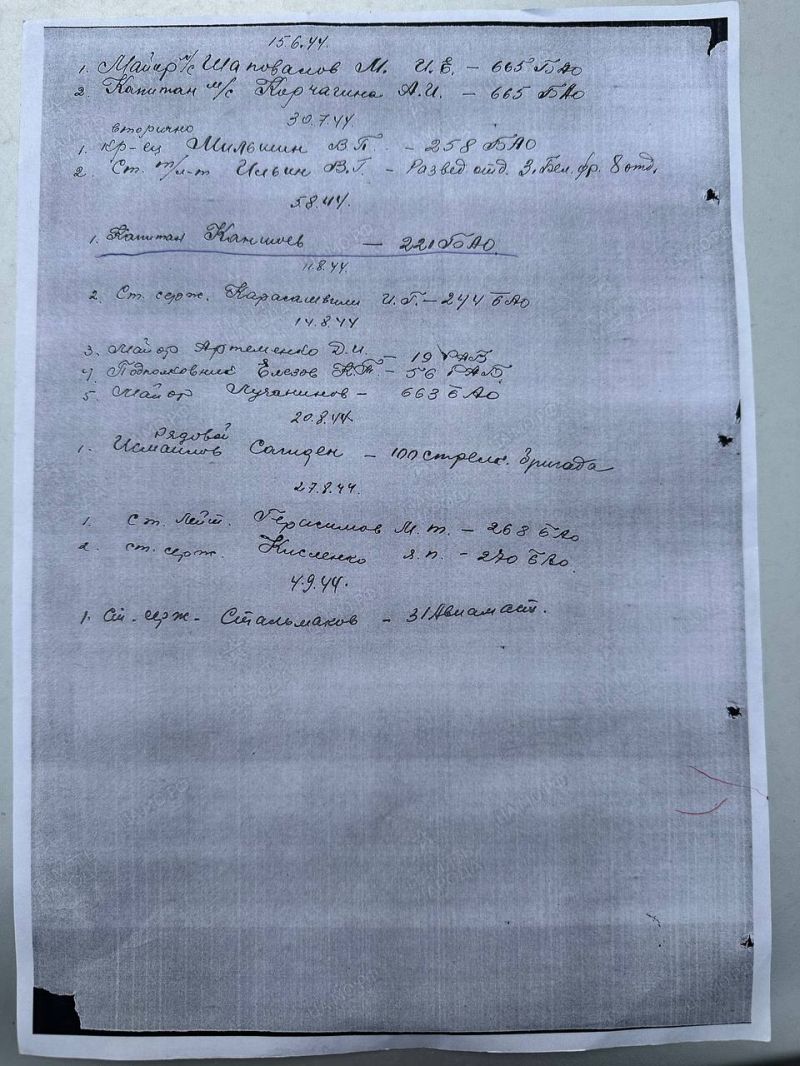 15.6.44.
1. Майор м/с Шаповалов М. И.Е. - 665 БАО
2. Капитан м/с Корчагина А.И. - 665 БАО
30.7.44
вторично
1. кр-ец Шильшин В.П. - 258 БАО
2. Ст. т/л-т Ильин В.Г. - Развед отд. 3. Бел. фр. 8 отд.
5.8.44.
1. Капитан Каншоев - 221 БАО
11.8.44.
2. Ст. серж. И.Г. - 244 БАО
14.8.44
3. Майор Артеменко Д.И. - 19 РАБ
4. Подполковник Елезов - 56 РАБ
5. Майор Лучанинов - 663 БАО
20.8.44.
рядовой
1. Исмаилов Сагиден - 100 стрелк. бригада
27.8.44.
1. ст. лейт. Герасимов М.т. - 268 БАО
2. ст. серж. Кисленко я.п. - 270 БАО.
4.9.44.
1. Ст. серж. Стальмаков - 31 Авиамаст.